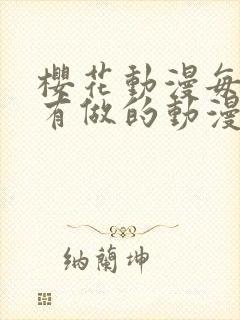 櫻花動漫每
有做的動漫
納蘭坤